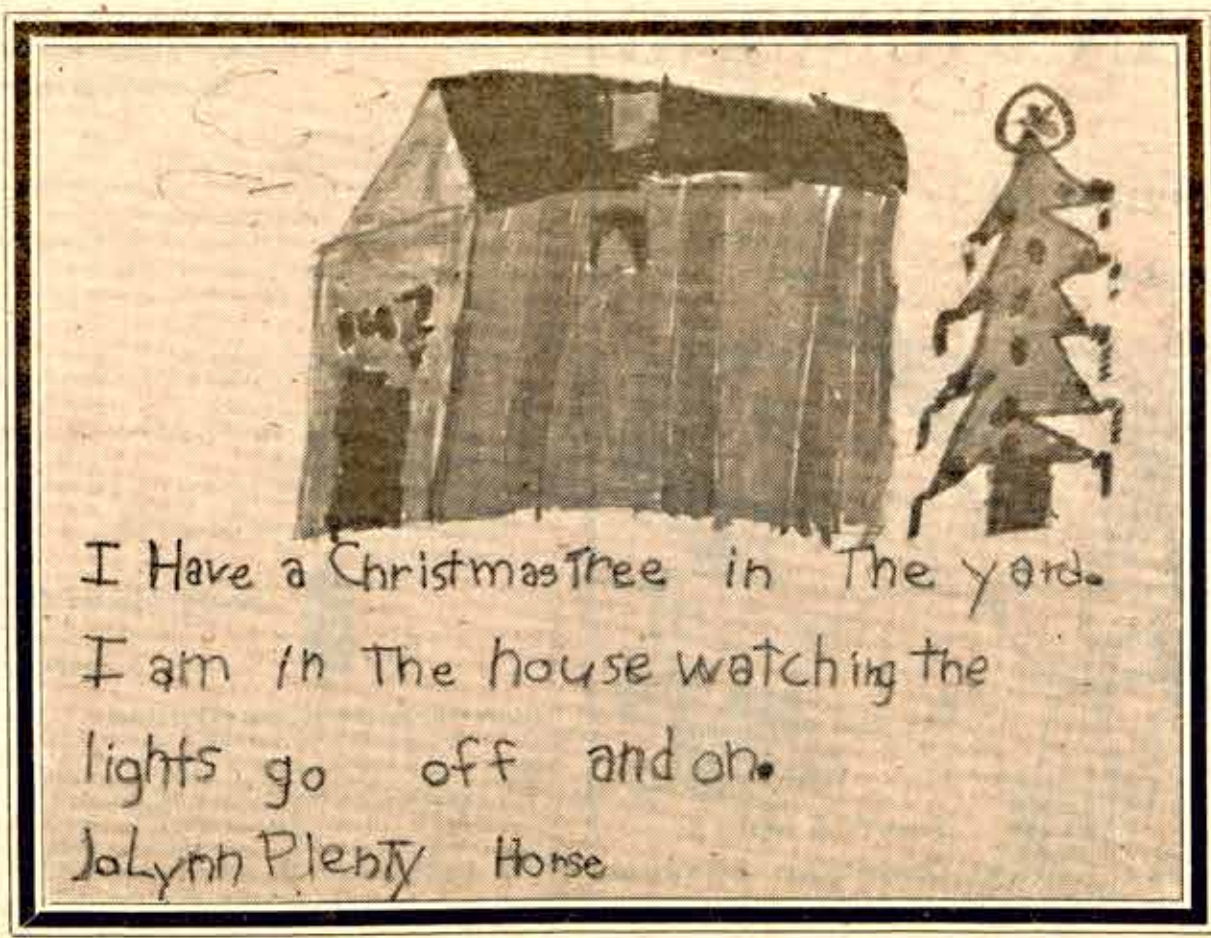 I Have a Christmas Tree in The yard.
I am in The house watching the
lights go off and on.
JoLynn Plenty Horse